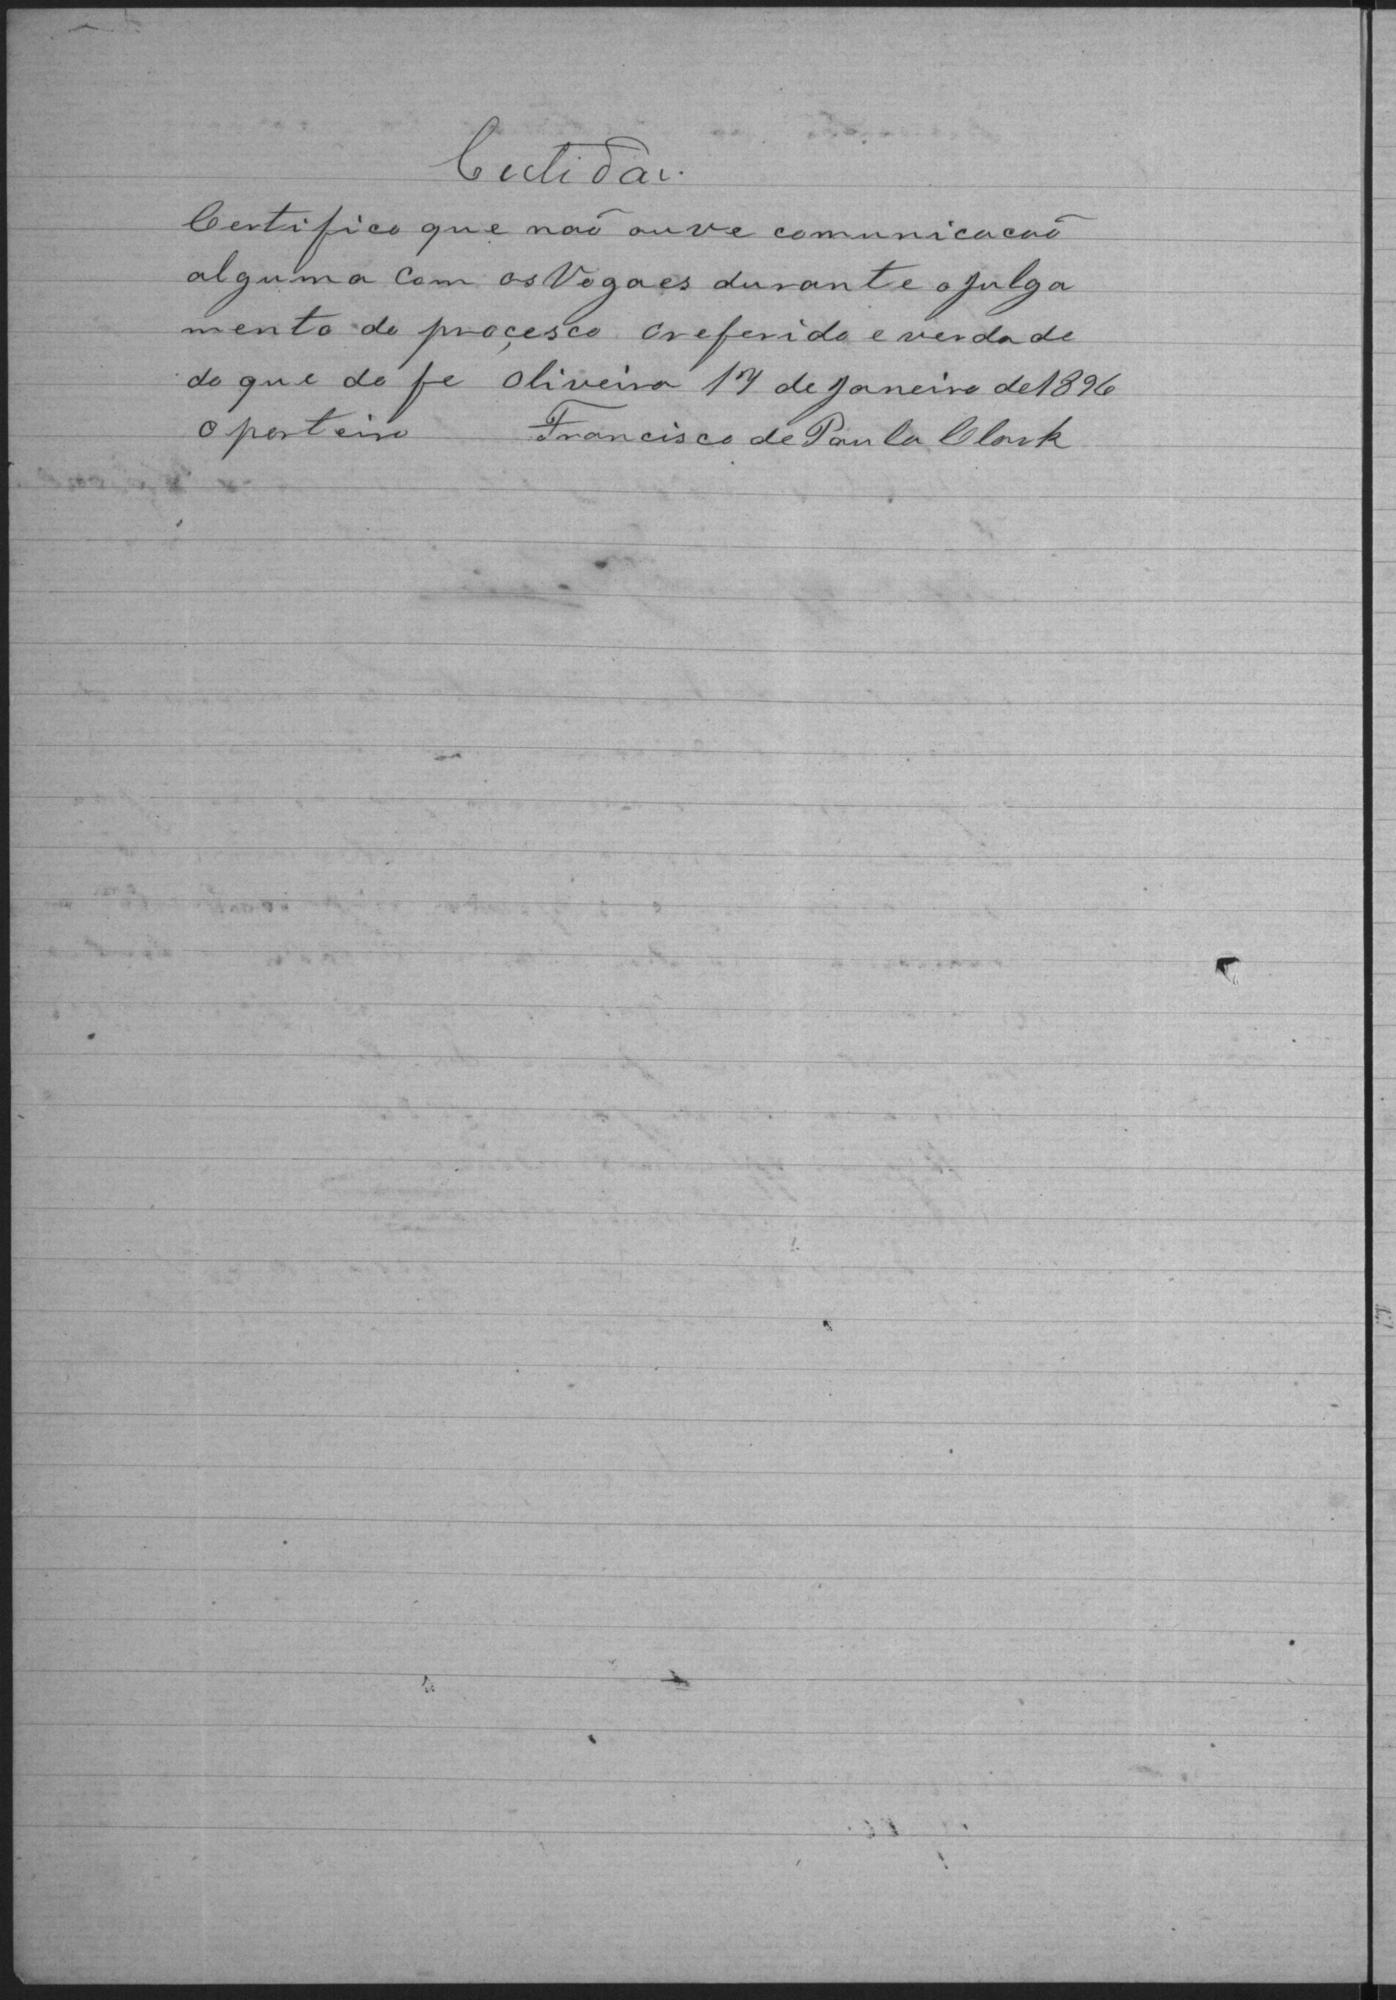 Certidão.
Certifico que naõ ouve comunicacaõ
alguma com os Vogaes durante o julga
mento do proçesco o referido e verdade
do que do fe Oliveira 17 de Janeiro de 1896
O porteiro Francisco de Paula Clark